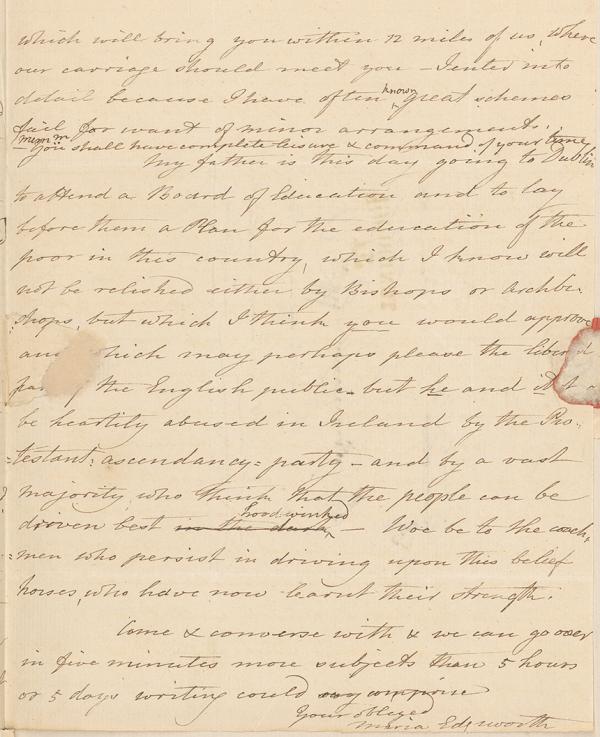 which will bring you within 12 miles of us, where
our carriage should meet you – I enter into
detail because I have often known great schemes
fail for want of minor arrangements.
Mem m you shall have complete leisure & command of your time
My father is this day going to Dublin
to attend a Board of Education and to lay
before them a Plan for the education of the
poor in this country, which I know will
not be relished either by Bishops or Archbi-
:shops, but which I think you would approve
and which may perhaps please the liberal
part the English public – but he and it
be heartily abused in Ireland by the Pro-
:testant = ascendancy = party – and by a vast
majority who think that the people can be
driven best in the dark hood-winked – Woe be to the coach-
=men who persist in driving upon this belief
horses, who have now learnt their strength.
Come & converse with & we can go over
in five minutes more subjects than 5 hours
or 5 days writing could
Your obliged
Maria Edgworth